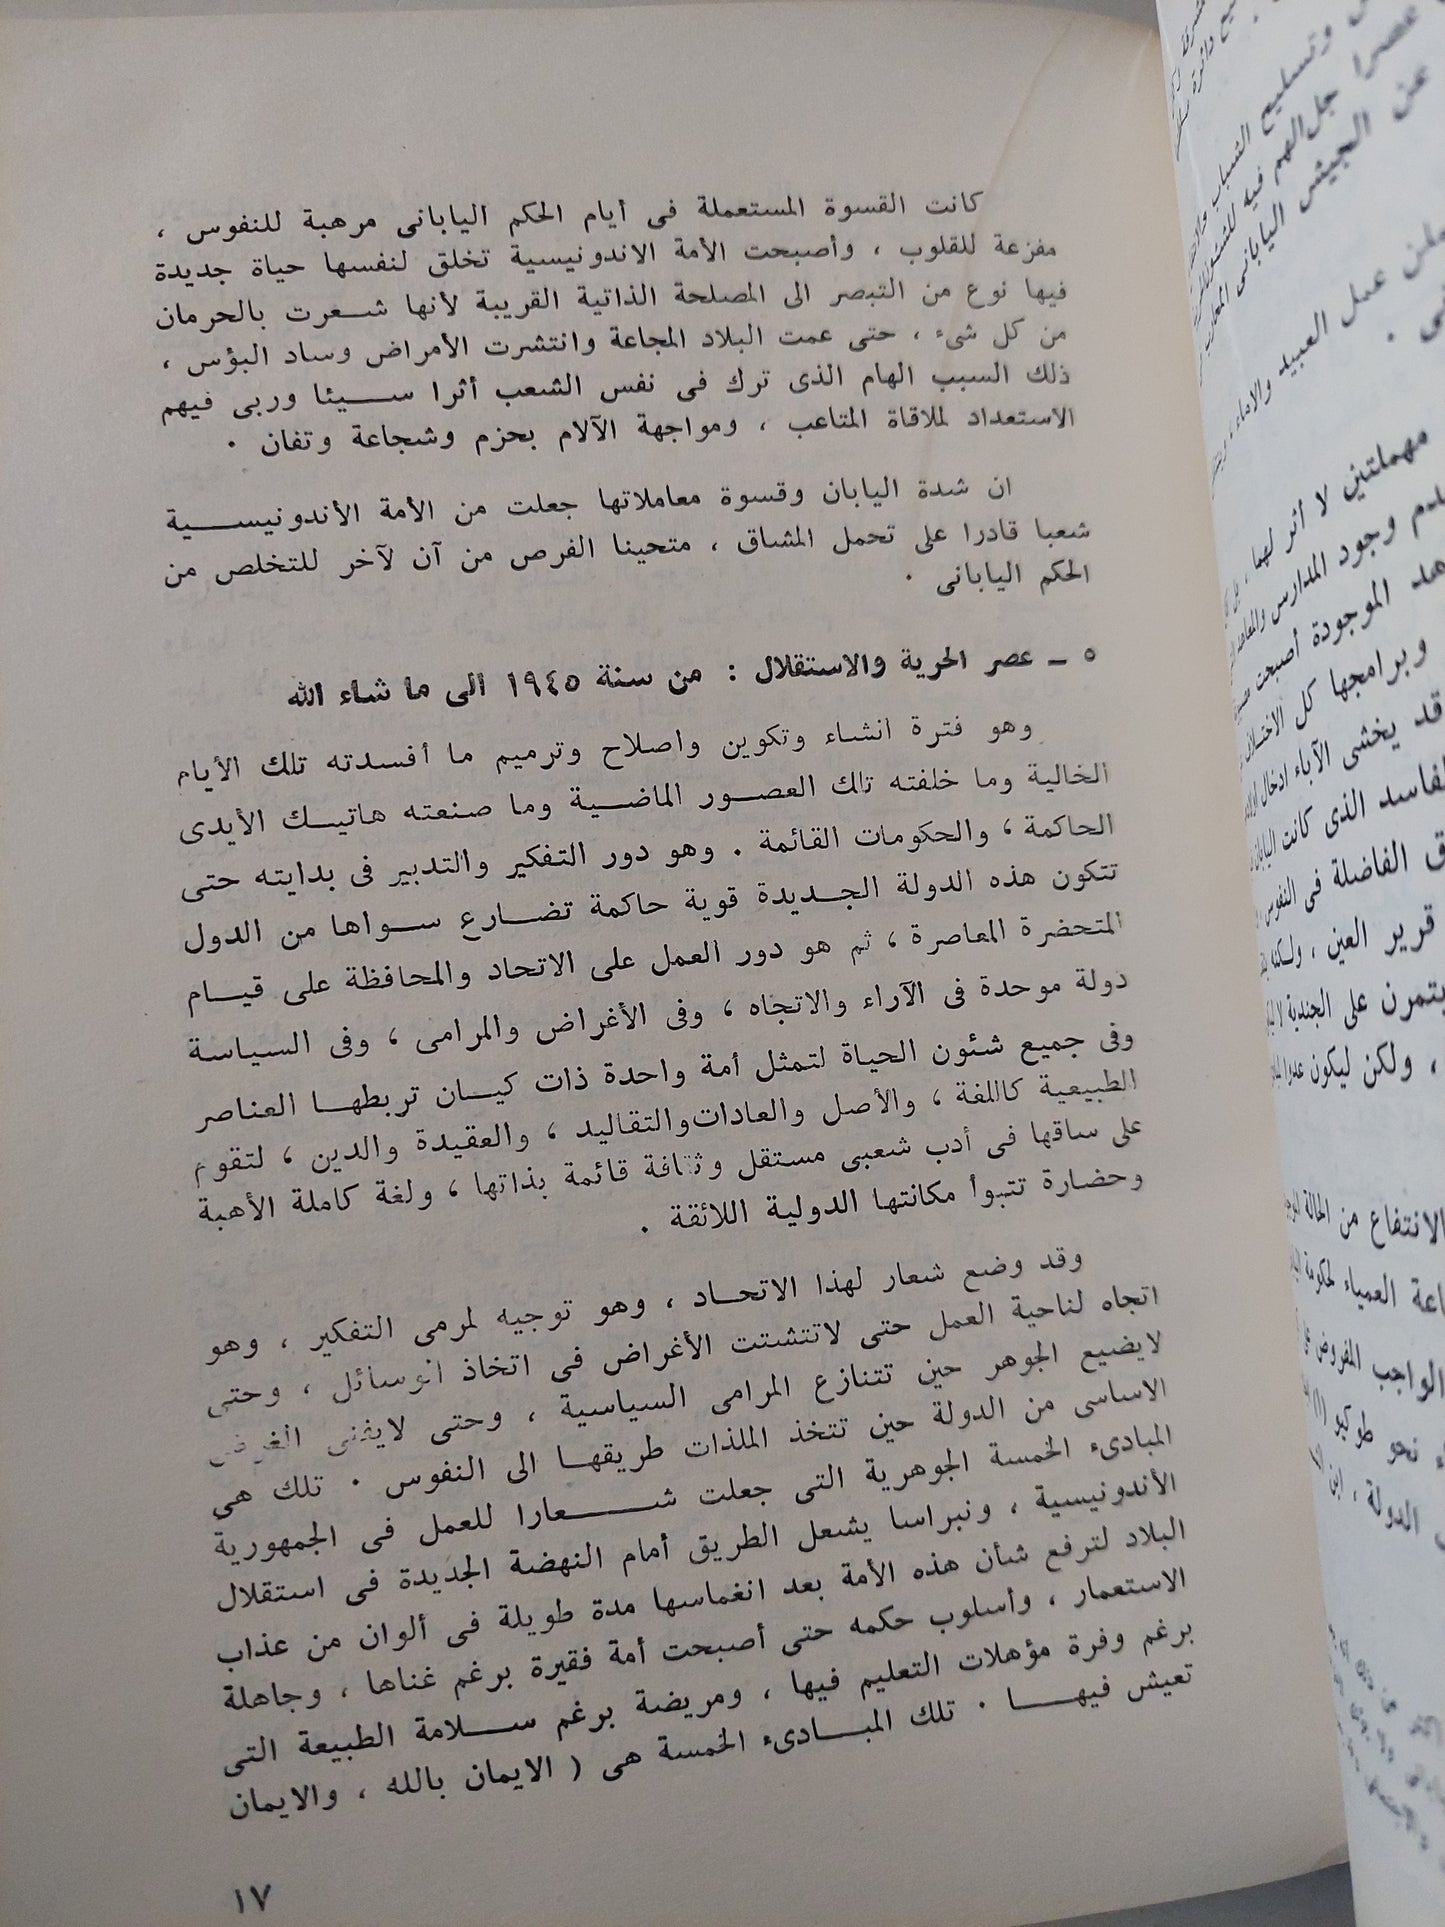 كانت القسوة المستعملة فى أيام الحكم اليابانى مرهبة للنفوس ،
مفزعة للقلوب ، وأصبحت الأمة الاندونيسية تخلق لنفسها حياة جديدة
فيها نوع من التبصر الى المصلحة الذاتية القريبة لأنها شعرت بالحرمان
من كل شىء ، حتى عمت البلاد المجاعة وانتشرت الأمراض وساد البؤس ،
ذلك السبب الهام الذى ترك فى نفس الشعب أثرا سيئا وربى فيهم
الاستعداد لملاقاة المتاعب ، ومواجهة الآلام بحزم وشجاعة وتفان ٠
ان شدة اليابان وقسوة معاملاتها جعلت من الأمة الأندونيسية
شعبا قادرا على تحمل المشاق ، متحينا الفرص من آن لآخر للتخلص من
الحكم اليابانى ٠
٥ ــ عصر الحرية والاستقلال : من سنة ١٩٤٥ الى ما شاء الله
وهو فترة انشاء وتكوين واصلاح وترميم ما أفسدته تلك الأيام
الخالية وما خلفته تلك العصور الماضية وما صنعته هاتيك الأيدى
الحاكمة ، والحكومات القائمة . وهو دور التفكير والتدبير فى بدايته حتى
تتكون هذه الدولة الجديدة قوية حاكمة تضارع سواها من الدول
المتحضرة المعاصرة ، ثم هو دور العمل على الاتحاد والمحافظة على قيام
دولة موحدة فى الآراء والاتجاه ، وفى الأغراض والمرامى ، وفى السياسة
وفى جميع شئون الحياة لتمثل أمة واحدة ذات كيان تربطها العناصر
الطبيعية كاللغة ، والأصل والعادات والتقاليد ، والعقيدة والدين ، لتقوم
على ساقها فى أدب شعبى مستقل وثقافة قائمة بذاتها ، ولغة كاملة الأهبة
وحضارة تتبوأ مكانتها الدولية اللائقة .
وقد وضع شعار لهذا الاتحاد ، وهو توجيه لمرمى التفكير ، وهو
اتجاه لناحية العمل حتى لاتتشتت الأغراض فى اتخاذ الوسائل ، وحتى
لايضيع الجوهر حين تتنازع المرامى السياسية ، وحتى لايفنى الغرض
الاساسى من الدولة حين تتخذ الملذات طريقها الى النفوس ٠ تلك هى
المبادىء الخمسة الجوهرية التى جعلت شعارا للعمل فى الجمهورية
الأندونيسية ، ونبراسا يشعل الطريق أمام النهضة الجديدة فى استقلال
البلاد لترفع شأن هذه الأمة بعد انغماسها مدة طويلة فى ألوان من عذاب
الاستعمار ، وأسلوب حكمه حتى أصبحت أمة فقيرة برغم غناها ، وجاهلة
برغم وفرة مؤهلات التعليم فيها ، ومريضة برغم سلامة الطبيعة التى
تعيش فيها ٠ تلك المبادىء الخمسة هى ( الايمان بالله ، والايمان
١٧
عن الجيش اليابانى
عمل العبيد والاماء
مهملتين لا أثر لهما ، بل
وجود المدارس
الموجودة أصبحت
وبرامجها كل
قد يخشى الآباء ادخال
الذى كانت اليابان
الفاضلة فى النفوس
قرير العين ،
يتمرن على الجندية
، ولكن ليكون
الانتفاع من الحالة
العمياء لحكومة
الواجب المفروض
نحو طوكيو (١)
الدولة ،